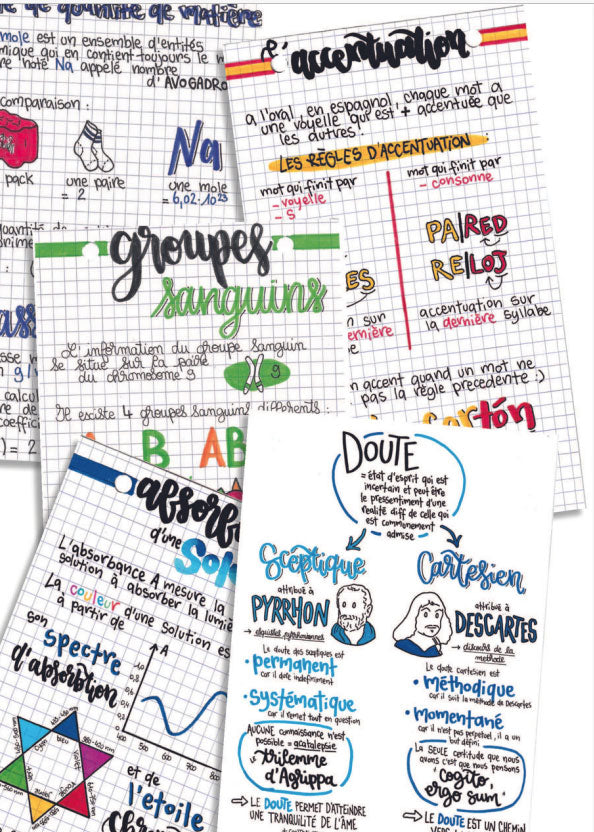 de quantité de matière
mole est un ensemble d'entités
mique qui en contient toujours le m
re noté Na appelé nombre
d'AVOGADRO
comparaison :
pack
une paire
= 2
Na
une mole
= 6,02.10²³
L'accentuation
à l'oral, en espagnol, chaque mot a
une voyelle qui est + accentuée que
les autres !
LES RÈGLES D'ACCENTUATION :
mot qui finit par
- voyelle
- S
mot qui finit par
- consonne
PA|RED
RE|LOJ
ES
n sur
ernière
accentuation sur
la dernière syllabe
n accent quand un mot ne
pas la règle precedente :)
tón
groupes
sanguins
L'information du groupe sanguin
se situe sur la paire
du chromosome 9
9
Il existe 4 groupes sanguins différents :
A B AB
absorb
d'une
Sol
L'absorbance A mesure la
solution à absorber la lumiè
La couleur d'une solution es
à partir de
son
spectre
d'absorption
A
0,8
0,6
0,4
0,2
400 500 600 700 800
et de
l'étoile
chr
DOUTE
= état d'esprit qui est
incertain et peut être
le pressentiment d'une
realité diff de celle qui
est communement
admise
Sceptique
attribué à
PYRRHON
Le doute des sceptiques est
• permanent
car il dure indefiniment
• systématique
car il remet tout en question
AUCUNE connaissance n'est
possible = acatalepsie
trilemme
d'Agrippa
⇒ LE DOUTE PERMET D'ATTEINDRE
UNE TRANQUILITÉ DE L'ÂME
Cartésien
attribué à
DESCARTES
→ discours de la
méthode
Le doute cartesien est
• méthodique
car il suit la méthode de Descartes
• momentané
car il n'est pas perpetuel, il a un
but défini
LA SEULE certitude que nous
avons c'est que nous pensons
"cogito,
ergo sum"
⇒ LE DOUTE EST UN CHEMIN
VERS